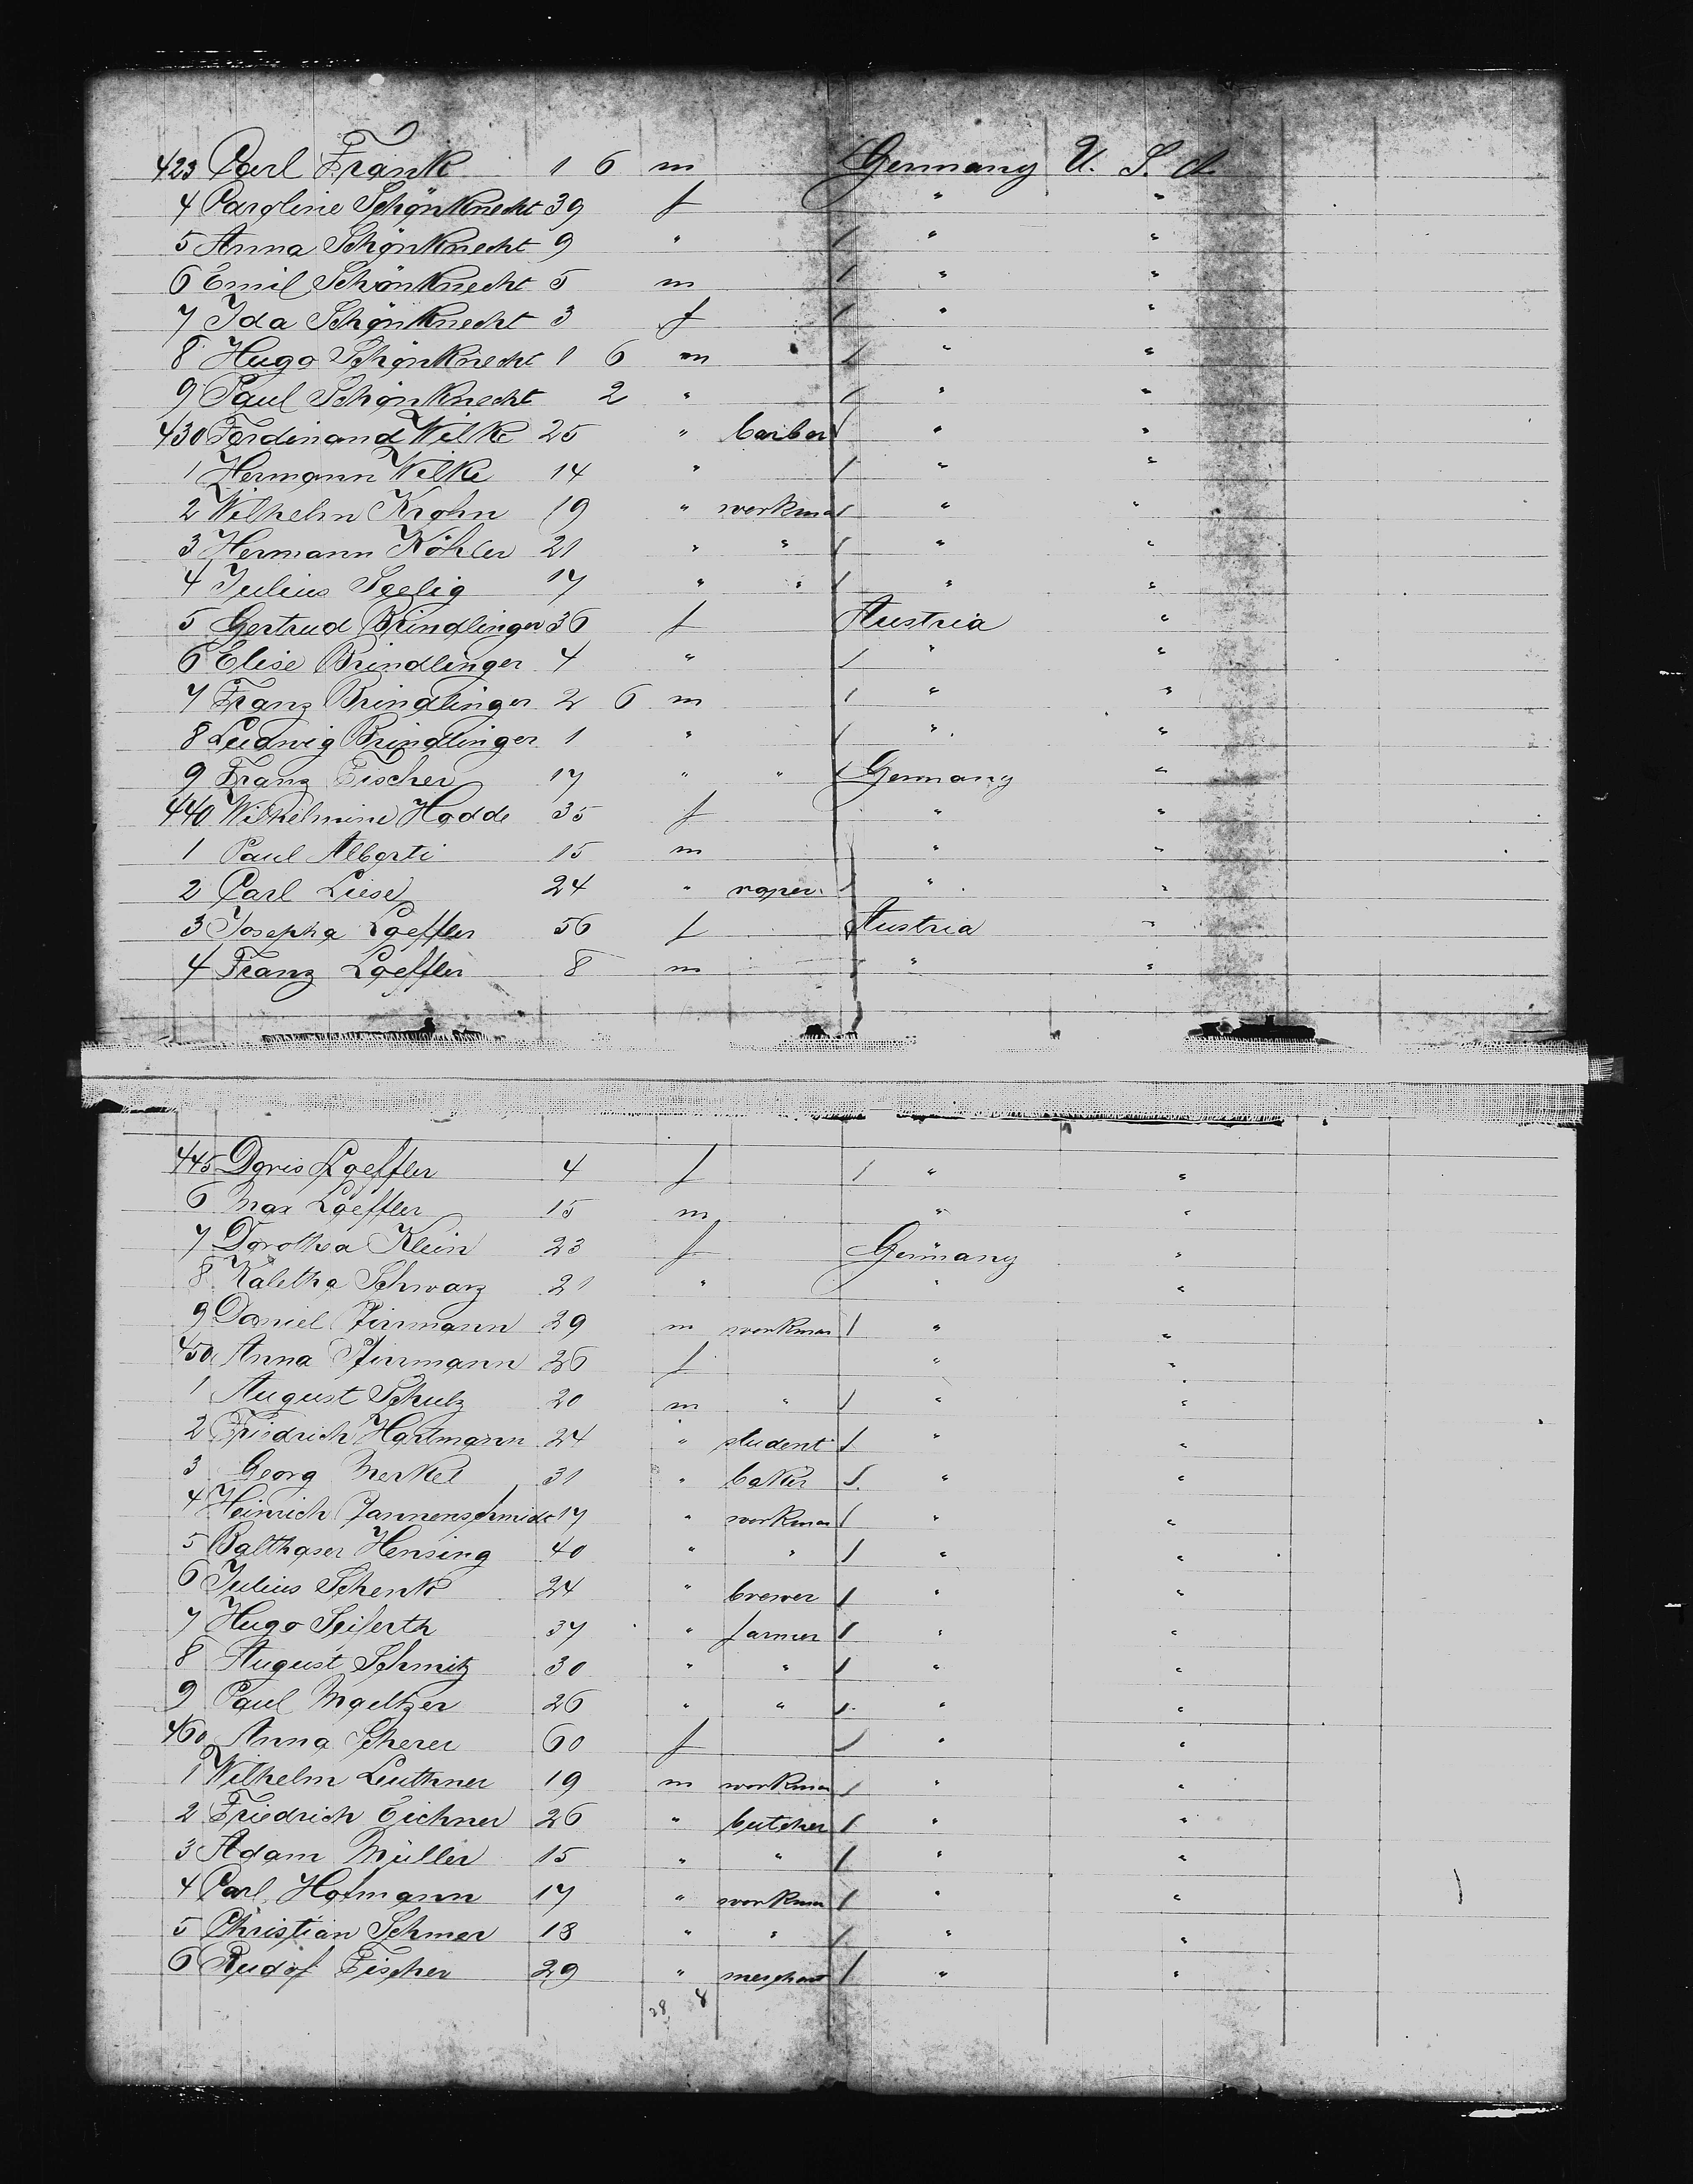 423 Carl Frank 1 6 m Germany U. S. A.
4 Caroline Schönknecht 39 f " "
5 Anna Schönknecht 9 " / " "
6 Emil Schönknecht 5 m / " "
7 Ida Schönknecht 3 f / " "
8 Hugo Schönknecht 1 6 m / " "
9 Paul Schönknecht 2 " / " "
430 Ferdinand Wilke 25 " barber / " "
1 Hermann Wilke 14 " / " "
2 Wilhelm Krohn 19 " workman / " "
3 Hermann Köhler 21 " " / " "
4 Julius Seelig 17 " " / " "
5 Gertrud Brindlinger 36 f Austria "
6 Elise Brindlinger 4 " / " "
7 Franz Brindlinger 2 6 m / " "
8 Ludwig Brindlinger 1 " / " "
9 Franz Fischer 17 " " / Germany "
440 Wilhelmine Hadde 35 f " "
1 Paul Alberti 15 m " "
2 Carl Liese 24 " roper / " "
3 Josepha Loeffler 56 f Austria "
4 Franz Loeffler 8 m / " "
445 Doris Loeffler 4 f / " "
6 Max Loeffler 15 m " "
7 Dorothea Klein 23 f Germany "
8 Kaletha Schwarz 21 " " "
9 Daniel Firrmann 29 m workman / " "
450 Anna Firrmann 26 f " "
1 August Schulz 20 m " / " "
2 Friedrich Hartmann 24 " student / " "
3 Georg Merkel 31 " baker / " "
4 Heinrich Pannenschmidt 17 " workman / " "
5 Balthaser Hensing 40 " " / " "
6 Julius Schenk 24 " brewer / " "
7 Hugo Seiferth 37 " farmer / " "
8 August Schmitz 30 " " / " "
9 Paul Maeltzer 26 " " / " "
460 Anna Scherer 60 f / " "
1 Wilhelm Leuthner 19 m workman / " "
2 Friedrich Eichner 26 " butcher / " "
3 Adam Müller 15 " " / " "
4 Carl Hofmann 17 " workman / " "
5 Christian Schmer 18 " " / " "
6 Rudof Fischer 29 " merchant / " "
28 8